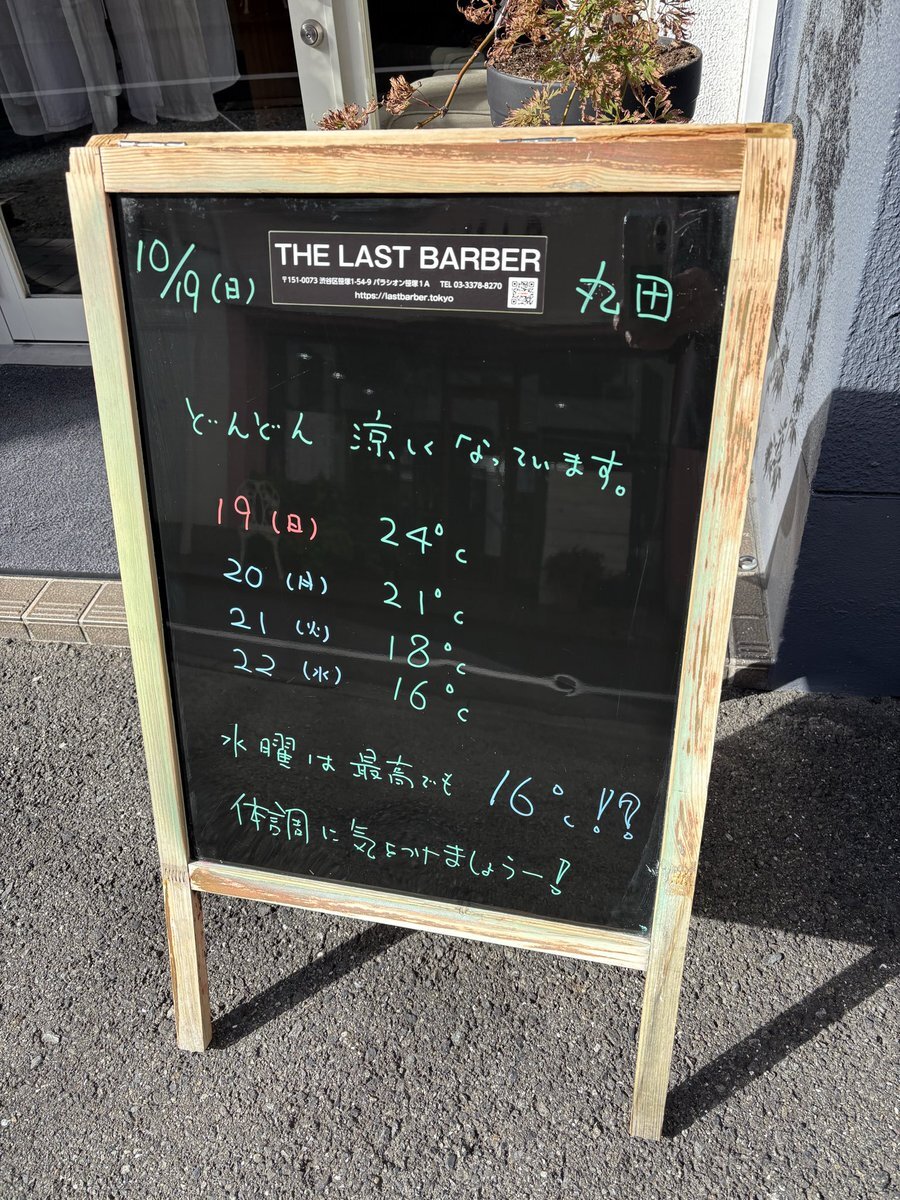 10/19(日)
THE LAST BARBER
〒151-0073 渋谷区笹塚1-54-9 パラシオン笹塚1A TEL 03-3378-8270
https://lastbarber.tokyo
丸田
どんどん 涼しくなっています。
19(日) 24°c
20(月) 21°c
21(火) 18°c
22(水) 16°c
水曜は最高でも 16°c!?
体調に気をつけましょうー!